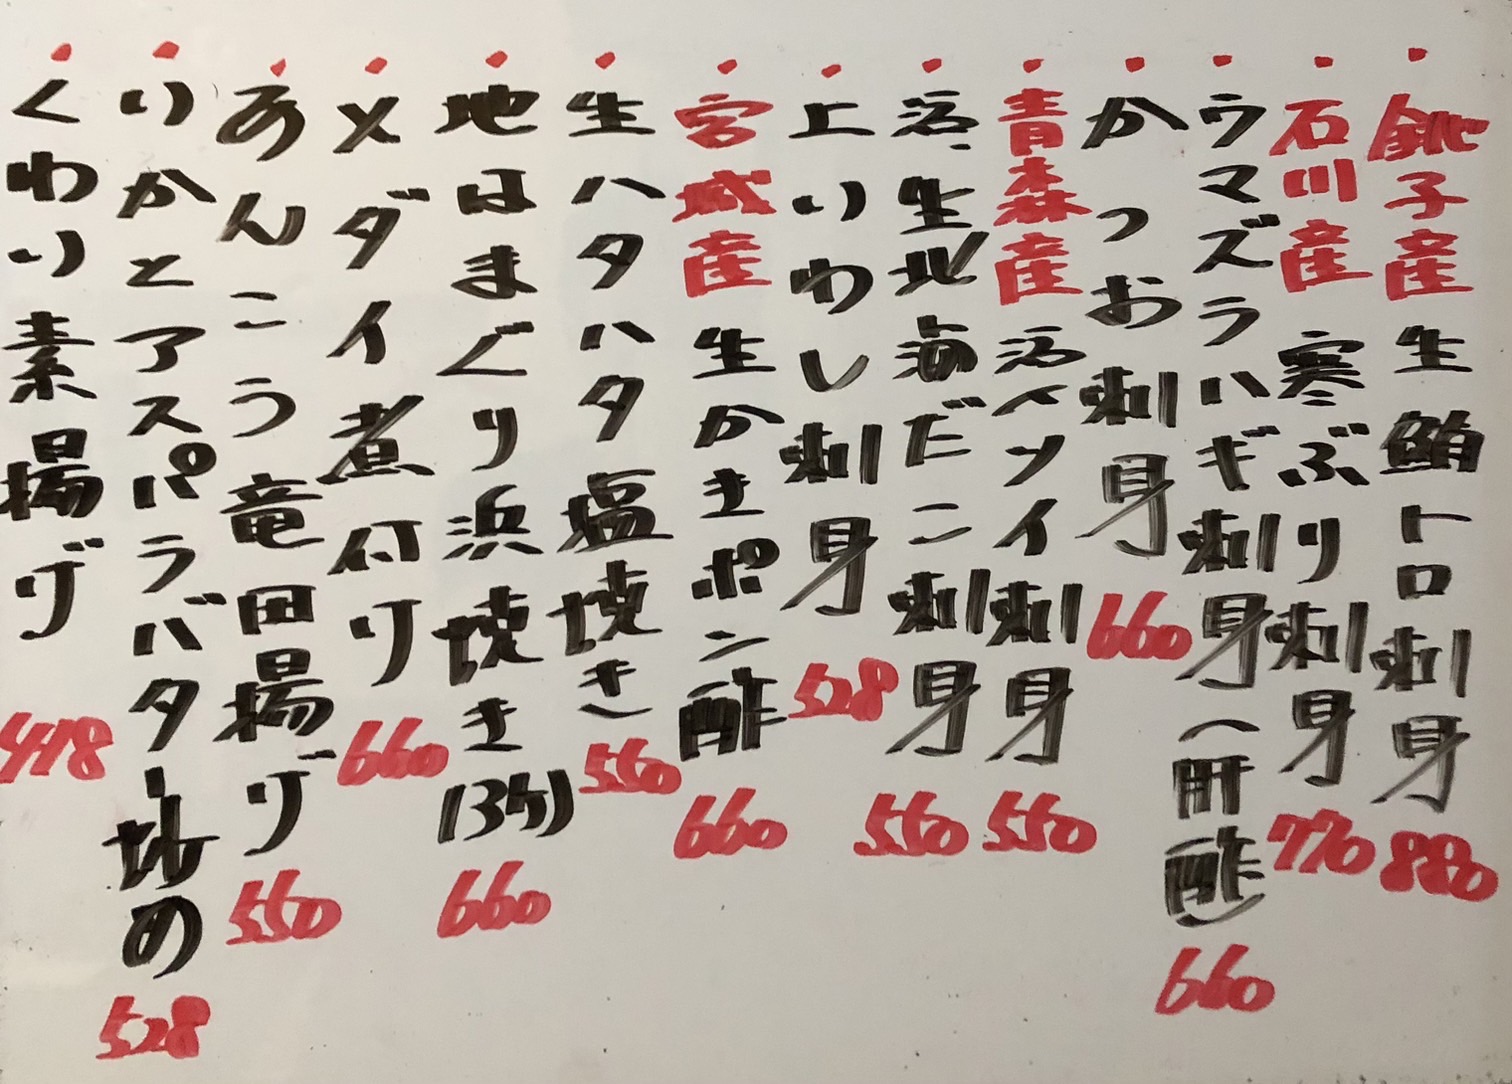 銚子産 生鮪トロ刺身 880
石川産 寒ぶり刺身 770
ウマズラハギ刺身(肝酢) 660
かつお刺身 660
青森産 活〆ソイ刺身 550
活 生北海だこ刺身 550
上いわし刺身 528
宮城産 生かきポン酢 660
生ハタハタ塩焼き 550
地はまぐり浜焼き(3ケ) 660
メダイ煮付け 660
あんこう竜田揚げ 550
いかとアスパラバター炒め 528
くわい素揚げ 418